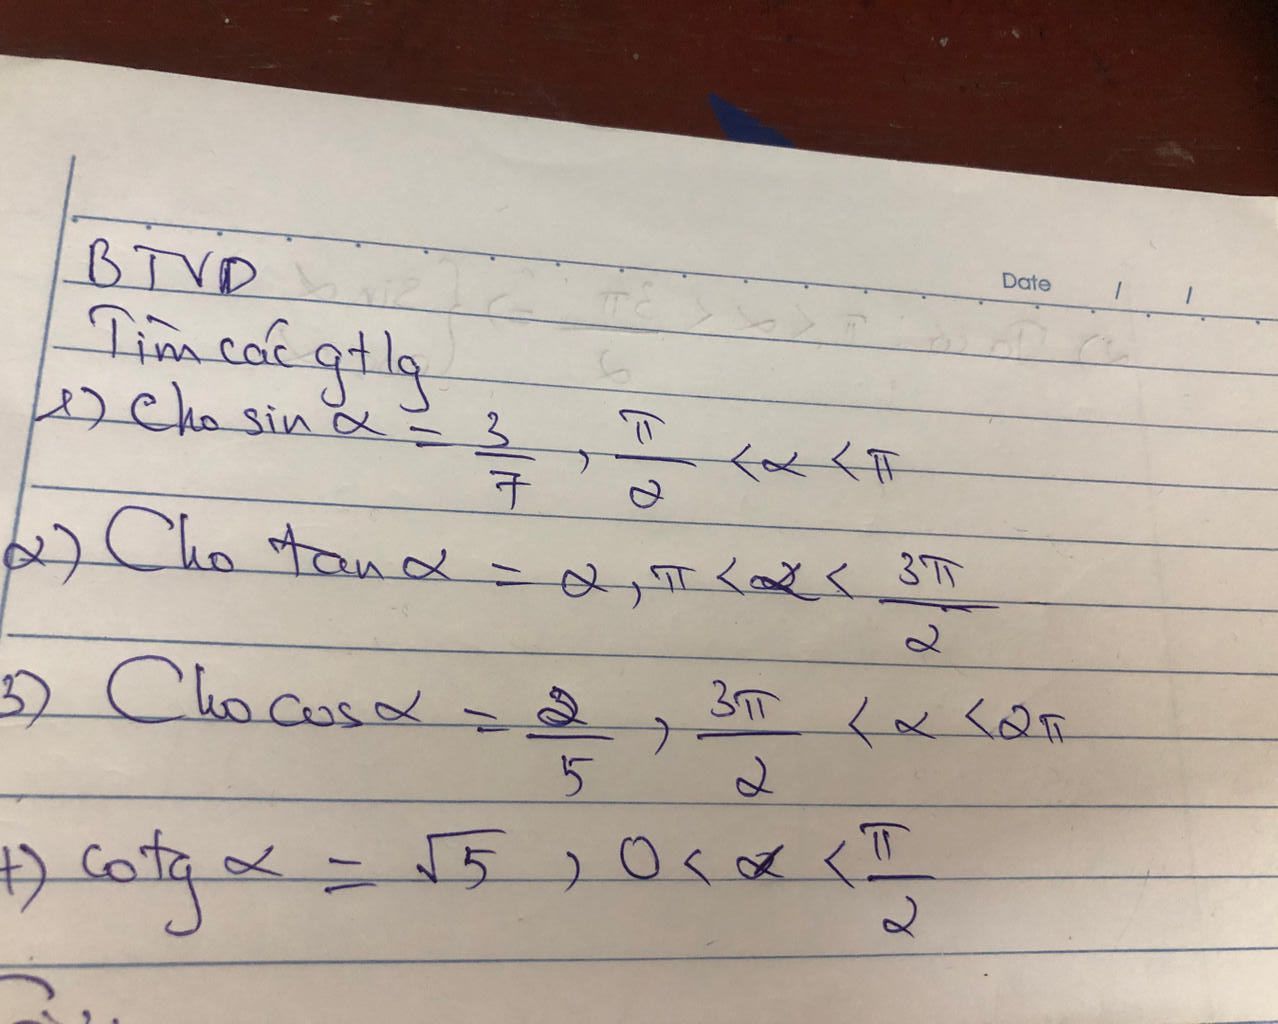 Date / /
BTVD
Tìm các gtlg
1) Cho sin α = 3/7, π/2 < α < π
2) Cho tan α = 2, π < α < 3π/2
3) Cho cos α = 2/5, 3π/2 < α < 2π
4) cotg α = √5, 0 < α < π/2